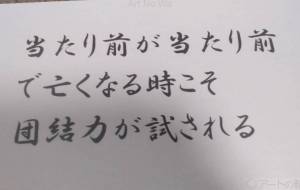 当たり前が当たり前
で亡くなる時こそ
団結力が試される